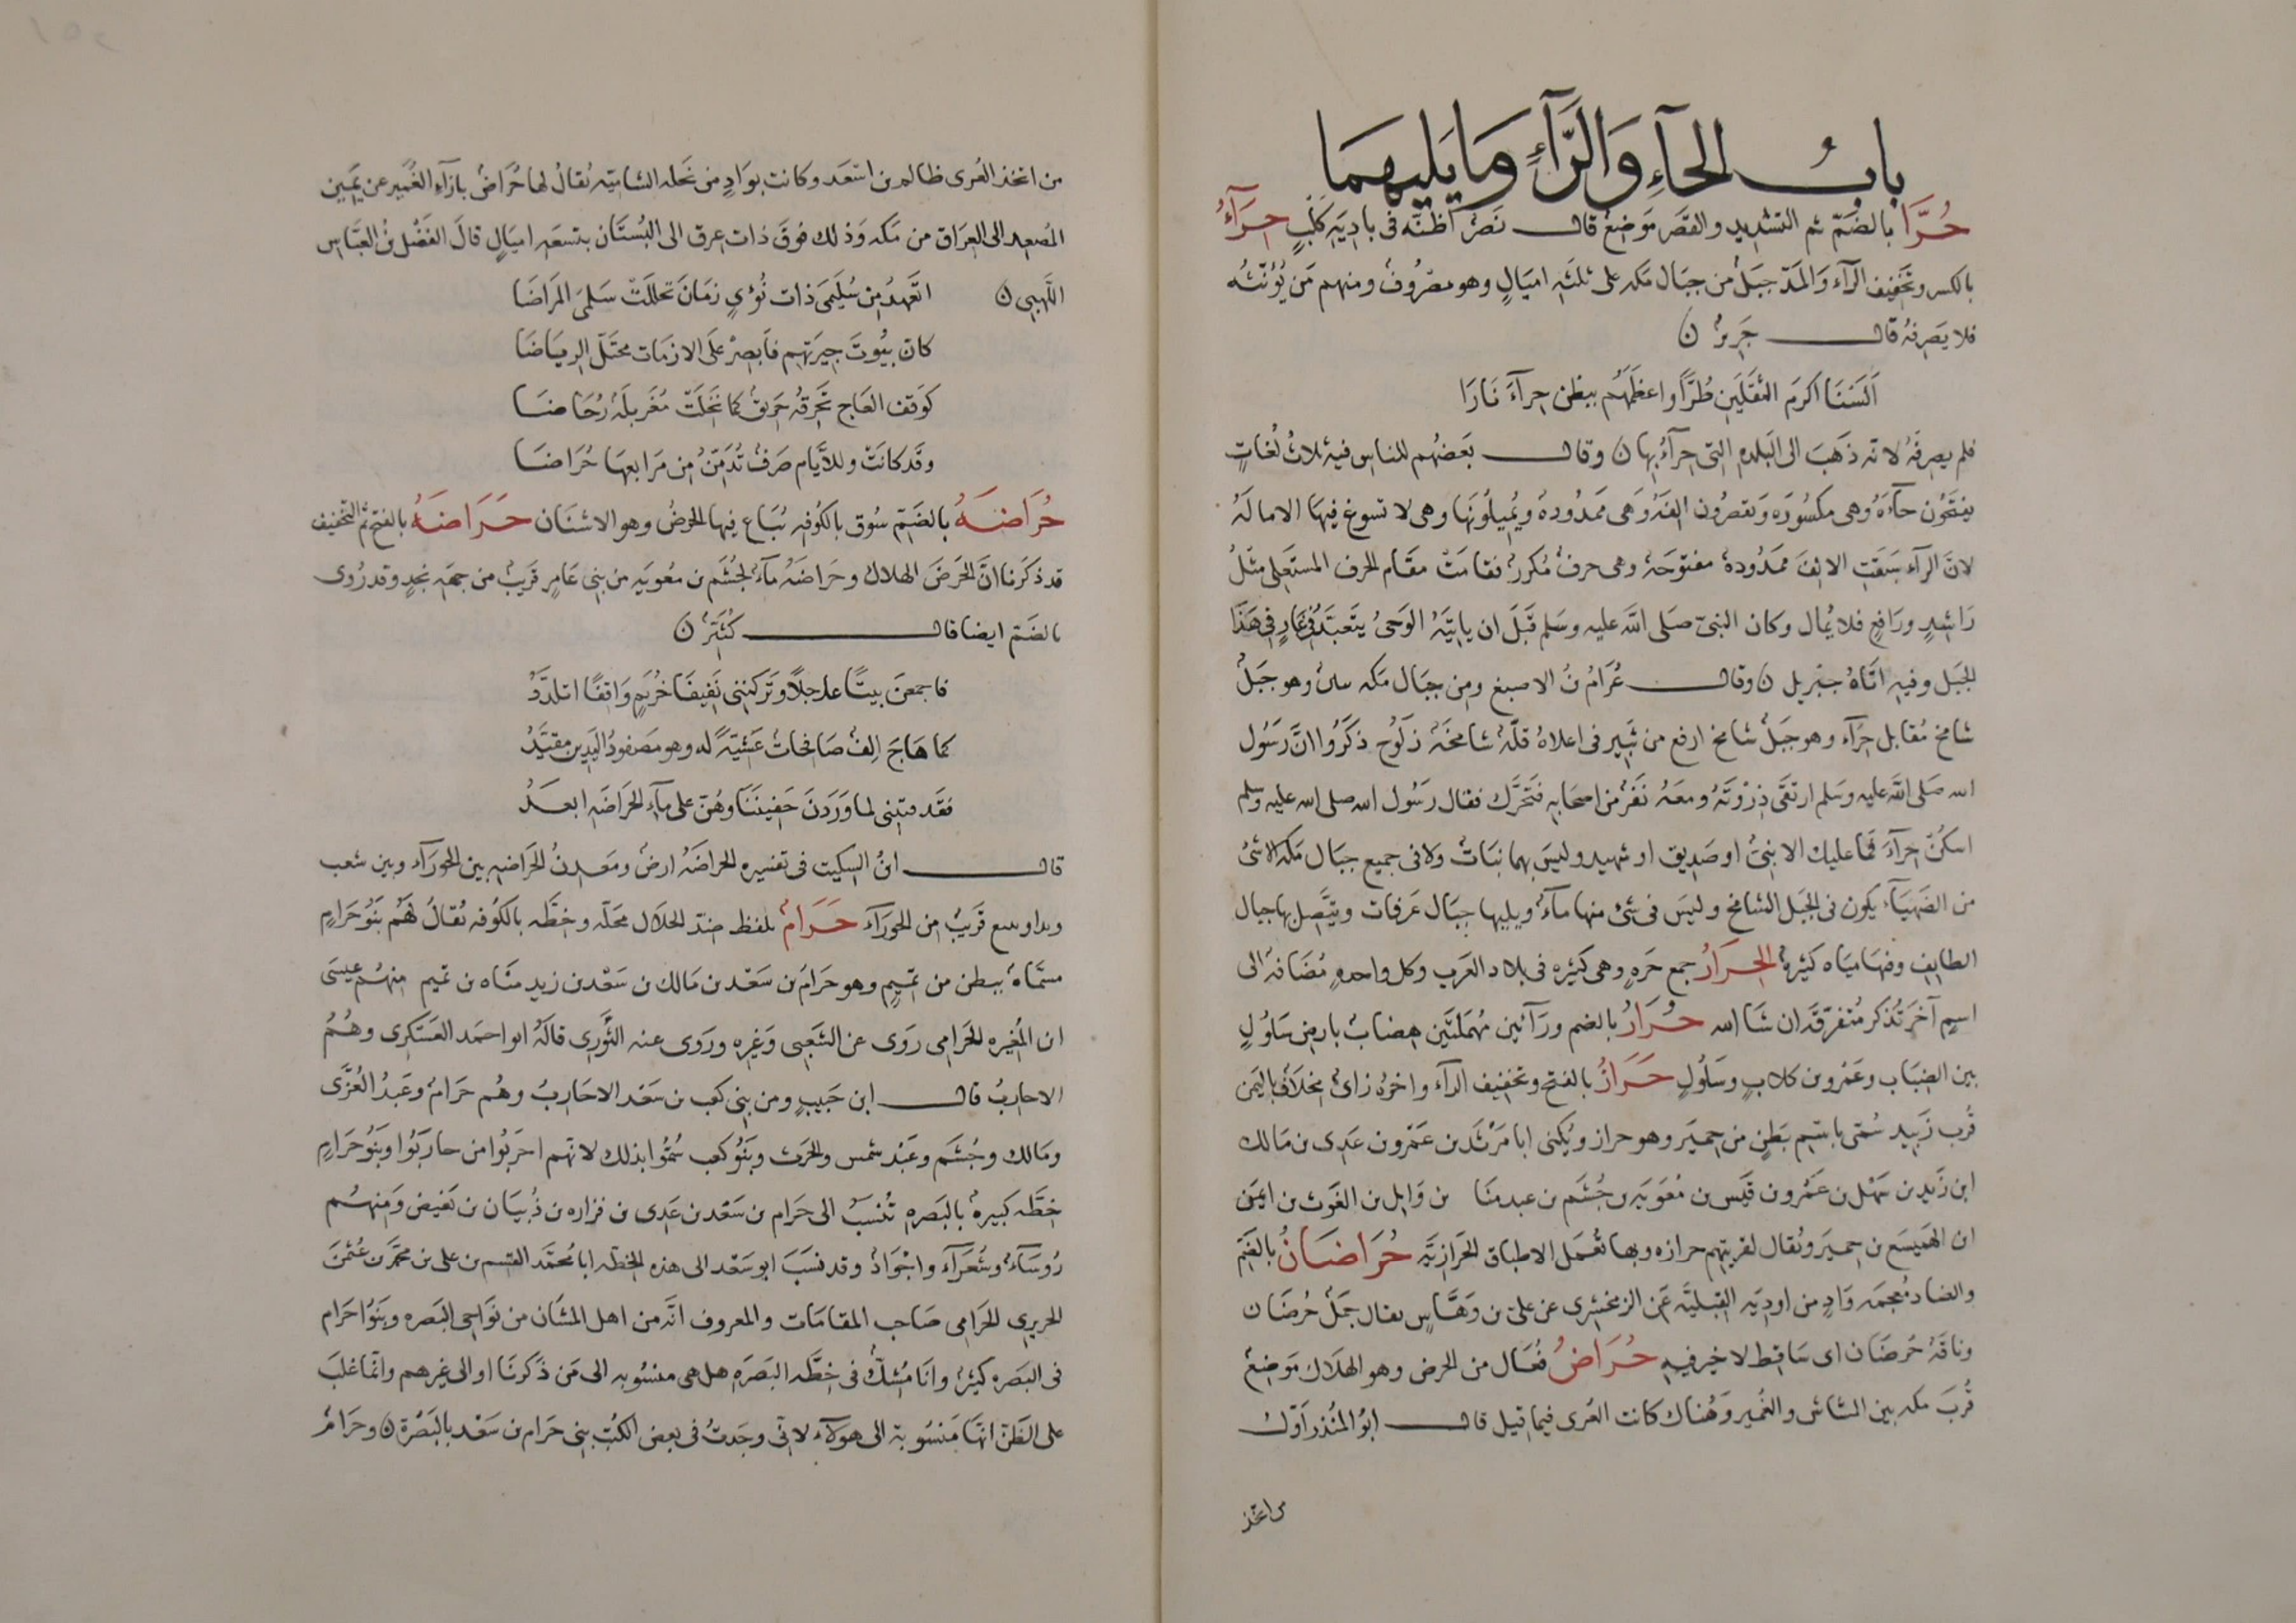 باب الحاءِ وَالرَّاءِ وَمَا يَليهمَا
حُرَّا بالضَمّ ثم التشديد والقصَر مَوضع قال نَصْر اظنّه فى باديَةِ كَلْبٍ حِرَآءُ
بالكسر وتخَفيف الرآء وَالمَدّ جبَلٌ من جبَال مَكه على ثلثَه اميَالٍ وهو مصْرُوفٌ ومنهم مَن يُؤنّثُه
فلا يَصرفهُ قال جَرير ن
اَلَسْنَا اكرَم الثقَلَين طُرًّا واعظَمَهُم ببطن حِرآءَ نَارَا
فلم يصرفهُ لانه ذَهَبَ الى البَلده التى حِرآءُ بها ن وقال بَعضهُم للناس فيه ثلاث لُغاتٍ
يفتحُون حآءَهُ وهى مكسُورَه ويَقصرُون الفَهُ وَهى ممدُودهُ ويُميلُونَها وهى لا تسوغ فيهَا الامالَهُ
لانَّ الرآء سَبقَتِ الالِفَ ممَدُودةٌ مفتوحَة وهى حرفٌ مُكررٌ فقامَتْ مقَام الحرف المستَعلى مثلُ
رَاشِدٍ ورَافعٍ فلا يُمال وكان النبىّ صَلى الله عليه وسَلم قَبلَ ان ياتيَهُ الوَحىُ يتَعبَّدُ فى غارٍ فى هَذا
الجبَل وفيه اتَاهُ جبْريل ن وقال عُرَامُ بنُ الاصبغ ومن جبَال مكه وهو جبَلٌ
شامخ مُقابل حِرآء وهو جبَلٌ شامخ ارفع من ثَبِير فى اعلاهُ قلّةٌ شامخَهٌ زَلُوج ذكَرُوا انَّ رَسُول
الله صَلى الله عليه وسَلم ارتقَى ذِرْوَتَهُ ومعَهُ نَفَرٌ من اصحَابه فتَحَرَّك فقال رَسُول الله صلى الله عليه وسلم
اسكُنْ حِرآءَ فمَا عليك الا نبىٌّ او صَديق او شهيد وليسَ بهما نبَاتٌ ولا فى جميع جبَال مكه الا شىٌ
من الضَهيَآء يكون فى الجبَل الشامخ وليسَ فى شىٍ منها مآءٌ ويليها جبَال عَرفات ويتّصل بها جبال
الطايِف وفيهَا ميَاه كثيرة الحِرَارُ جمع حَرهٍ وهى كثيرَه فى بلاد العرَب وكل واحدهٍ مُضَافهٌ الى
اسمٍ آخرَ تُذكر مُتفرّقة ان شآ الله حُرَارٌ بالضم ورَآئين مُهمَلتَين هضابٌ بارض سَلُولٍ
بين الضِبَاب وعَمْرو بن كلابٍ وسَلُولٍ حَرَازٌ بالفتح وتخفيف الرآء واخرُه زاىٌ مخلافٌ باليمَن
قُرب زَبيد سُمّى باسم بَطنٍ من حمِيَر وهو حراز ويُكنى ابا مَرْثد بن عَمْرو بن عدِى بن مَالك
ابن زَيد بن سَهْل بن عَمْرو بن قيَس بن مُعَويَه بن جُشَم بن عبد بن وَايل بن الغَوث بن ايمَن
ابن الهَميسَع بن حِميَر ويُقال لقريتهم حرازه وبها تُعمل الاطباق الحَرازيّه حُرَاضَانُ بالضَمّ
والضاد مُعجمَه وَادٍ من اوديَه القبَليَّه عَن الزمخشرى عن علىّ بن وَهّاسٍ يقال جمَلٌ حُرضَان
وناقَهٌ حُرضَان اى سَاقِط لا خير فيهِ حُرَاضٌ فُعَال من الحرض وهو الهلاك مَوضعٌ
قُربَ مكه بين المشاش والغُمير وهُناك كانت العُزى فيما قيل قال ابُو المُنذر اوّل
من اتخذ
من اتخذ العُزى ظالم بن اسْعَد وكانت بوَادٍ من نخَله الشاميّه يُقالُ لها حُرَاضٌ بازآء الغُمَير عن يَمين
المُصعِد الى العِرَاق من مَكه وَذلك فوقَ ذات عرق الى البُستَان بتسعَه اميَالٍ قالَ الفَضْل بنُ العَبّاس
اللَهبِى ن اتَعْهدُ مِن سُلَيمَى ذات نُؤىٍ زمَانَ تحللَتْ سَلمىَ المرَاضَا
كان بيُوتَ جيرَتهِم فاَبصِرْ علَى الازمَات محتَلّ الريَاضَا
كوَقف العَاج تحَرقهُ حَريقٌ كما نَخَلَتْ مُغَربلَهٌ رُحَاضَا
وقَد كانَتْ وللأيَّام صَرفٌ تُدَمِّنُ مِن مَرَابعهَا حُرَاضَا
حُرَاضَهُ بالضَمّ سُوق بالكُوفه يُبَاع فيها الحُرضُ وهو الاشنَان حَرَاضَهُ بالفتح ثمّ التخفيف
قد ذكَرنا انَّ الحَرَضَ الهلاك وحَرَاضَهُ مآءٌ لجُشَم بن مُعويَه من بَنى عَامِرٍ قَريَبٌ من جهَة نجدٍ وقد رُوى
بالضَمّ ايضا قال كُثَيّرٌ ن
فاجمعنَ بينًا عاجلاً وتَركننى بَفيفَا خُريَمٍ وَاقفًا اتلدَّدُ
كما هَاجَ الِفٌ صَافِحَاتٌ عَشيّهً له وهو مَصفودُ اليدين مقيَّدُ
فقَد فتننى لما وَرَدنَ خَفيننَا وهُنّ على مآءِ الحَرَاضَهِ ابعَدُ
قال ابنُ السكيت فى تفسيره الحراضَهُ ارضٌ ومعَدنُ الحَرَاضه بين الحورَآء وبين شعب
وينبع قَريبٌ من الحَورَآءِ حَرَامٌ بلفظ ضدّ الحلاَل محَله وخطّه بالكُوفه يُقالُ لهُم بَنُو حَرَامٍ
مسَمّاةٌ ببطن من تَميمٍ وهو حَرَامُ بن سَعْد بن مَالك بن سَعْد بن زيد مَناه بن تميم منهُم عيسَى
ابن المُغيره الحَرَامى رَوَى عن الشَّعبِى وَغيره ورَوى عنه الثَّورِى قالَهُ ابو احمَد العَسكَرِى وهُمُ
الاحاربُ قال ابن حَبيبٍ ومن بنى كعب بن سَعْد الاحَاربُ وهُم حَرامٌ وعَبدُ العُزَّى
ومَالك وجُشَم وعَبْد شمس والحرث وبَنُو كعب سُمُّوا بذلك لانهم احَربُوا من حارَبُوا وبَنُو حَرَامٍ
خِطّه كبيرةٌ بالبَصره تُنسَبُ الى حَرام بن سَعْد بن عَدِى بن فزاره بن ذُبيَان بن بَغيض وَمنهُم
رُوسَآءٌ وشعَرَآءُ واجْوَادٌ وقد نسَبَ ابو سَعْد الى هذه الخِطه ابا مُحمَّد القسم بن على بن محمّد بن عُثمنَ
الحريرى الحَرامى صَاحب المقامَات والمعروف انّه من اهل المشَان من نوَاحِى البَصره وبَنُوا حَرَام
فى البَصره كثيرٌ وانَا مُشكّ فى خِطّه البَصرَه هل هى منسُوبه الى مَن ذَكرنَا او الى غيرهم وانّما غلبَ
على الظَنّ انهَا مَنسُوبة الى هَولآء لانّى وجَدتُ فى بعض الكتبِ بنى حَرام بن سَعْد بالبَصْرة ن وحَرَامٌ